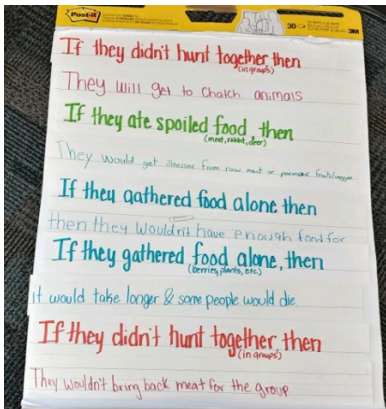 Post-it
30
3M
If they didn't hunt together then
(in groups)
They will get to Chatch animals
If they ate spoiled food, then
(meat, rabbit, deer)
They would get illnesses from raw meat or
If they gathered food alone then
then they wouldn't have enough food for
If they gathered food alone, then
(berries, plants, etc.)
it would take longer & some people would die.
If they didn't hunt together, then
(in groups)
They wouldn't bring back meat for the group